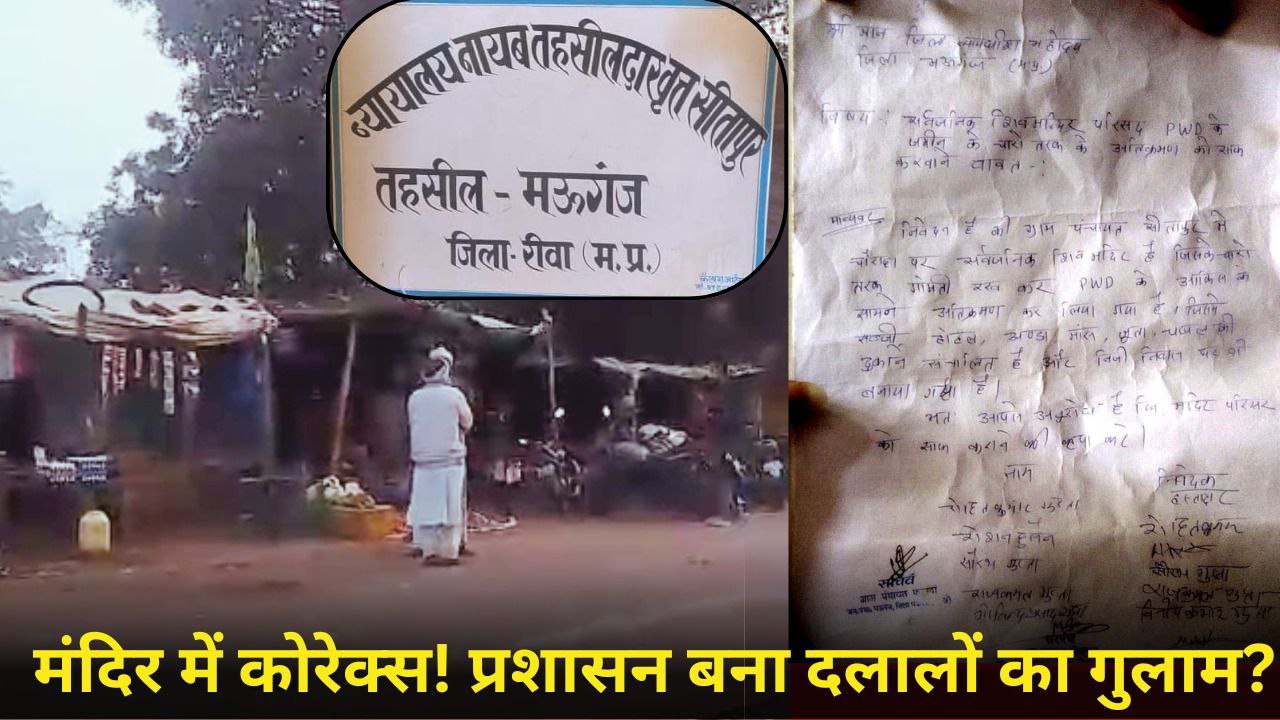 न्यायालय नायब तहसीलदार वृत्त सीतापुर
तहसील - मऊगंज
जिला-रीवा (म.प्र.)
श्री मान जिला न्यायधीश महोदय
जिला मऊगंज (म.प्र)
विषय : सर्वजनिक शिव मन्दिर परिसद PWD के
जमीन के चारो तरफ के अतिक्रमण को साफ
करवाने बावत -:
मान्यवर
निवेदन है की ग्राम पंचायत सीतापुर मे
चौराहा पर सर्वजनिक शिव मंदिर है जिसके चारो
तरफ गोमती रख कर PWD के ऑफिस के
सामने अतिक्रमण कर लिया गया है। जिसमे
सब्जी होटल, अण्डा मांस, जूता-चप्पल की
दुकान संचालित है और निजी निवास घर भी
बनाया गया है।
अतः आपसे अनुरोध है कि मंदिर परिसर
को साफ कराने की कृपा करे।
नाम
निवेदक
हस्ताक्षर
रोहित कुमार गुप्ता
रोशन हुसैन
सौरभ गुप्ता
सौरभ गुप्ता
सचिव
ग्राम पंचायत
मंदिर में कोरेक्स! प्रशासन बना दलालों का गुलाम?